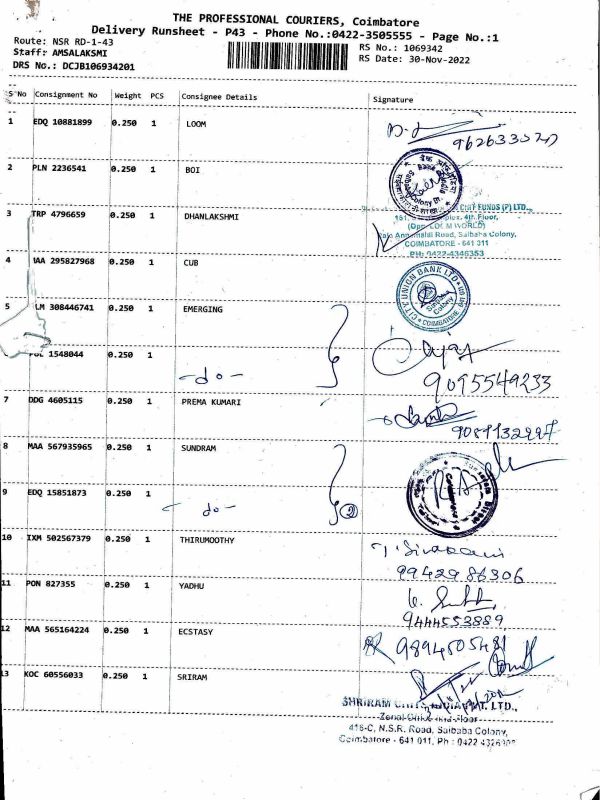 THE PROFESSIONAL COURIERS, Coimbatore
Delivery Runsheet - P43 - Phone No.:0422-3505555 - Page No.:1
Route: NSR RD-1-43
RS No.: 1069342
Staff: AMSALAKSMI
RS Date: 30-Nov-2022
DRS No.: DCJB106934201
S No Consignment No Weight PCS Consignee Details Signature
1 EDQ 10881899 0.250 1 LOOM
2 PLN 2236541 0.250 1 BOI
3 TRP 4796659 0.250 1 DHANLAKSHMI
CHIT FUNDS (P) LTD.,
4th Floor,
(Opp. LOOM WORLD)
Road, Saibaba Colony,
COIMBATORE - 641 011
PH: 0422-4346353
4 MAA 295827968 0.250 1 CUB
CITY UNION BANK LTD
Saibaba Colony
COIMBATORE
5 308446741 0.250 1 EMERGING
1548044 0.250 1 -do-
9095549233
7 DDG 4605115 0.250 1 PREMA KUMARI
8 MAA 567935965 0.250 1 SUNDRAM
9 EDQ 15851873 0.250 1 -do- 2
10 IXM 502567379 0.250 1 THIRUMOOTHY
9942986306
11 PON 827355 0.250 1 YADHU
9444553889
12 MAA 565164224 0.250 1 ECSTASY
9894505481
13 KOC 60556033 0.250 1 SRIRAM
SHRIRAM CHITS INDIA PVT. LTD.,
Zonal Office
416-C, N.S.R. Road, Saibaba Colony,
Coimbatore - 641 011, Ph : 0422